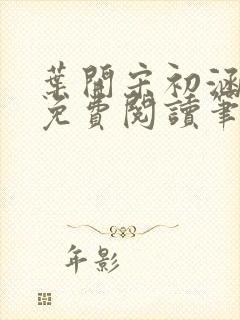 葉開宋初涵
免費閱讀筆
年影